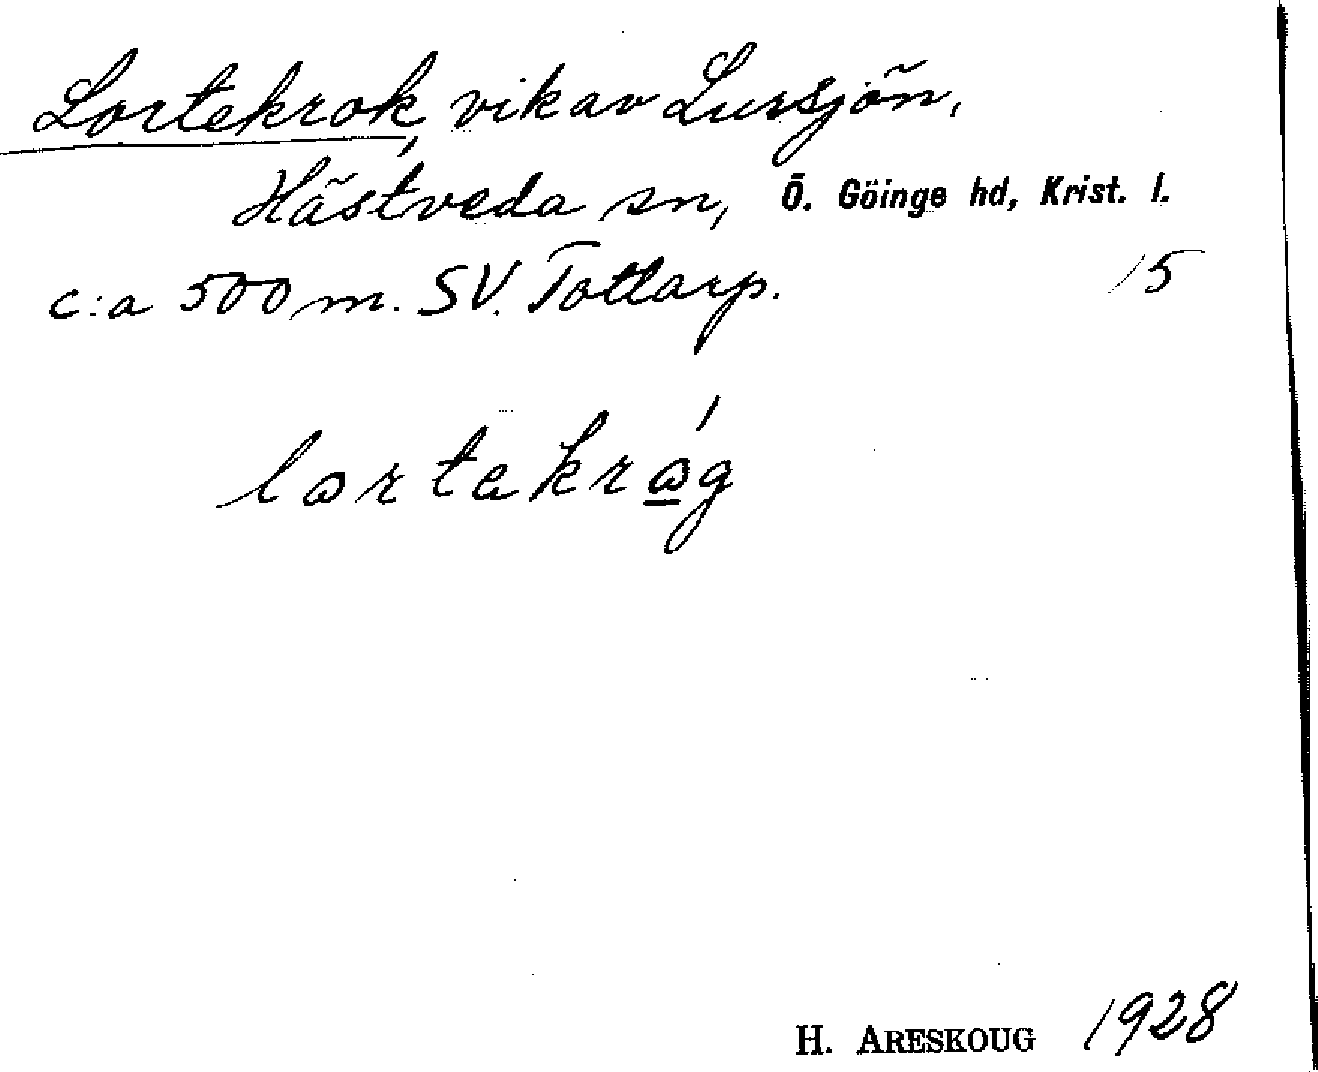 Lortekrok, vik av Lursjön,
Hästveda sn, Ö. Göinge hd, Krist. l.
c:a 500 m. SV. Tottarp. 15
lortakråg
H. ARESKOUG 1928